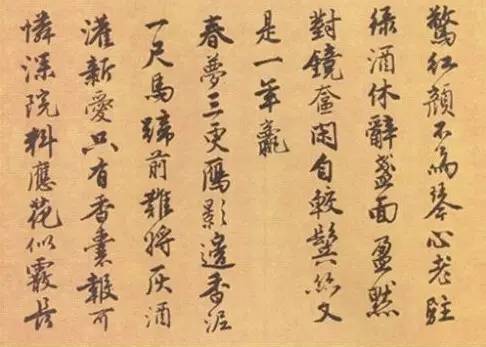 鶯紅顏不為琴心老駐
綠酒休辭盞面盈默
對鏡奩閑自較鬂絲又
是一年虧
春夢三更鴈影邊香泥
一尺馬蹄前難將灰酒
灌新愛只有香囊報可
憐深院料應花似霰長